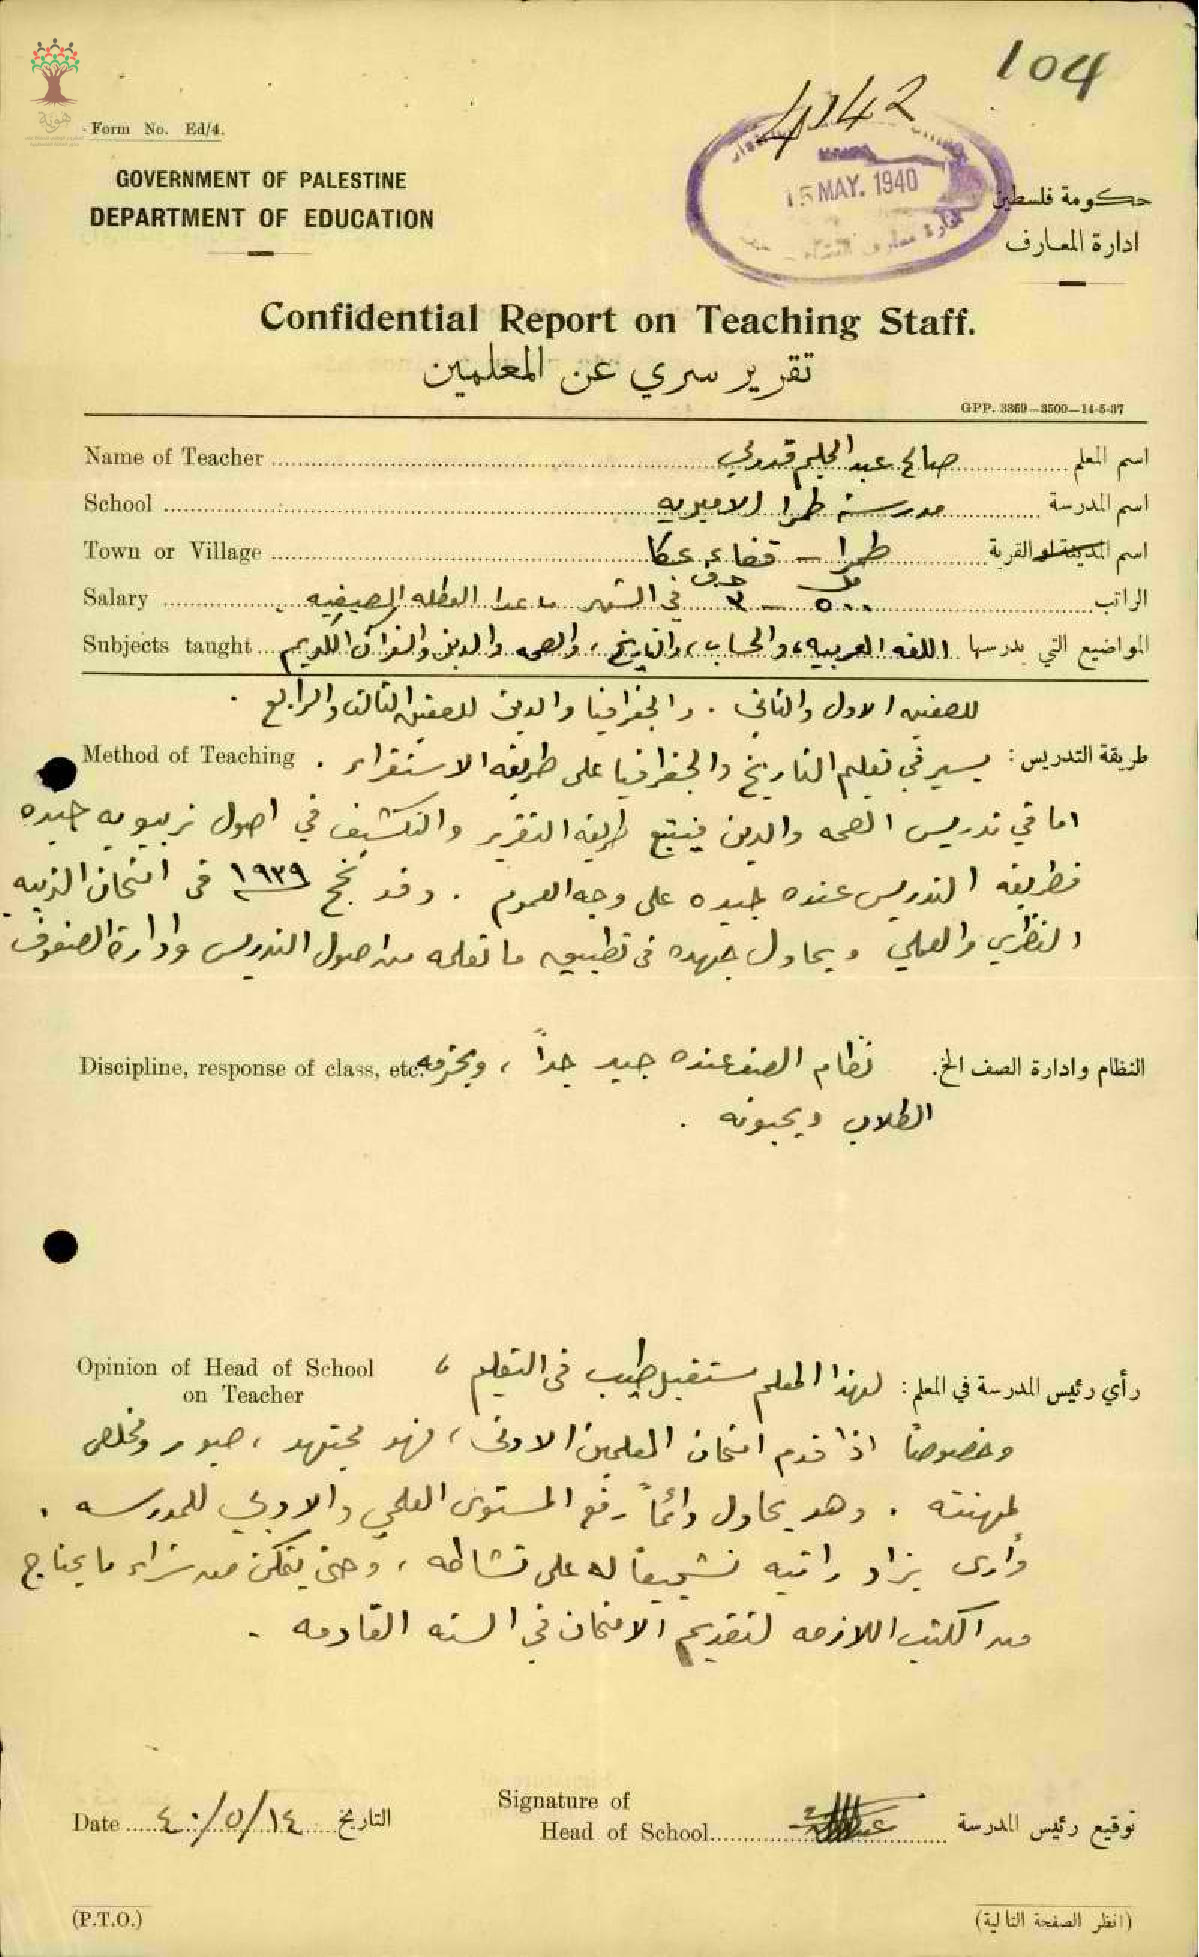 104
4142
Form No. Ed/4.
GOVERNMENT OF PALESTINE
DEPARTMENT OF EDUCATION
15 MAY. 1940
حكومة فلسطين
ادارة المعارف
Confidential Report on Teaching Staff.
تقرير سري عن المعلمين
GPP. 3369—3500—14-5-37
Name of Teacher صالح عبد الحليم قدورة اسم المعلم
School مدرسة طمرا الاميريه اسم المدرسة
Town or Village طمرا - قضاء عكا اسم المدينة او القرية
Salary ٥٠٠ مل - ٣ ج.ف في الشهر ما عدا العطله الصيفيه . الراتب
Subjects taught اللغه العربيه، والحساب، والتاريخ، والصحه والدين والقرآن الكريم المواضيع التي يدرسها
للصفين الاول والثاني . والجغرافيا والدين للصفين الثالث والرابع .
Method of Teaching يسير في تعليم التاريخ والجغرافيا على طريقه الاستقراء . طريقة التدريس :
اما في تدريس الصحه والدين فيتبع طريقه التقرير والتكشيف في اصول تربيويه جيده
فطريقه التدريس عنده جيده على وجه العموم . وقد نجح ١٩٣٩ في امتحان التربيه
النظري والعملي ويحاول جهده في تطبيق ما تعلمه من اصول التدريس وادارة الصفوف
Discipline, response of class, etc. نظام الصف عنده جيد جداً ، ويحترمه النظام وادارة الصف الخ.
الطلاب ويحبونه .
Opinion of Head of School
on Teacher
رأي رئيس المدرسة في المعلم : لهذا المعلم مستقبل طيب في التعليم ،
وخصوصاً اذا قدم امتحان المعلمين الادنى ، فهو مجتهد ، صبور ومخلص
لمهنته . وهو يحاول دائماً رفع المستوى العلمي والادبي للمدرسه .
وأرى يزاد راتبه تشجيعاً له على نشاطه ، وحتى يتمكن من شراء ما يحتاج
من الكتب اللازمه لتقديم الامتحان في السنه القادمه .
Date ١٤/٥/٤٠ التاريخ
Signature of
Head of School توقيع رئيس المدرسة
(P.T.O.)
(انظر الصفحة التالية)